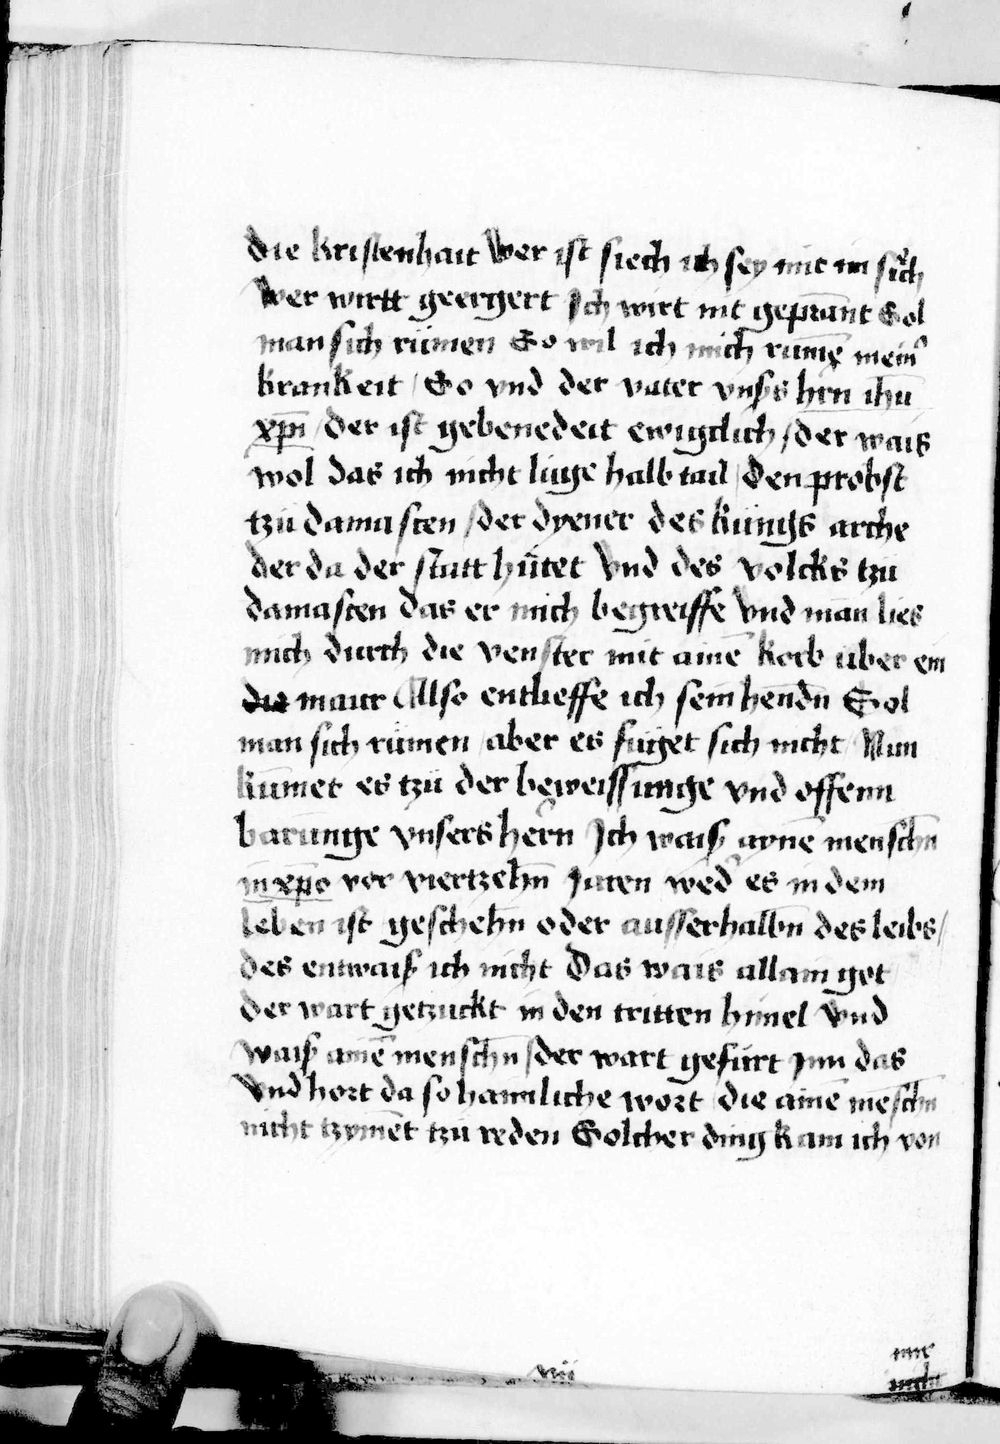 die kristenhait Wer ist siech ich sey mit im sich
Wer wirtt geergert Jch wirt nit geprānt Sol
man sich rümen So wil ich mich rūmē mein᷑
krankeit / So vnd der vater vnßs hrn ihū
xp̄i / der ist gebenedeit ewigclich / der wais
wol das ich nicht lüge halb tail / den probst
tzü damasten / der dyener des küngs arche
der da der statt hütet Vnd des volcks tzü
damasten das er mich begreiffe Vnd man lies
mich durch die venster mit ainē korb über ein
die maur Allso entlieffe ich sein hendn Sol
man sich rümen / aber es füget sich nicht / Nun
kūmet es tzü der beweissunge vnd offenn
barunge vnsers hern Jch waiß aynē menschn
in xp̄o vor viertzehn Jaren wed᷑ es in dem
leben ist geschehn oder ausserhalbn des leibs /
des entwaiß ich nicht Das wais allain got
der wart getzuckt in den tritten himel Vnd
waiß ainē menschn / der wart gefürt jnn das
Vnd hort da so hamliche wort / die ainē mēschn
nicht tzymēt tzü reden Solcher ding kam ich von
vii
mir
nicht